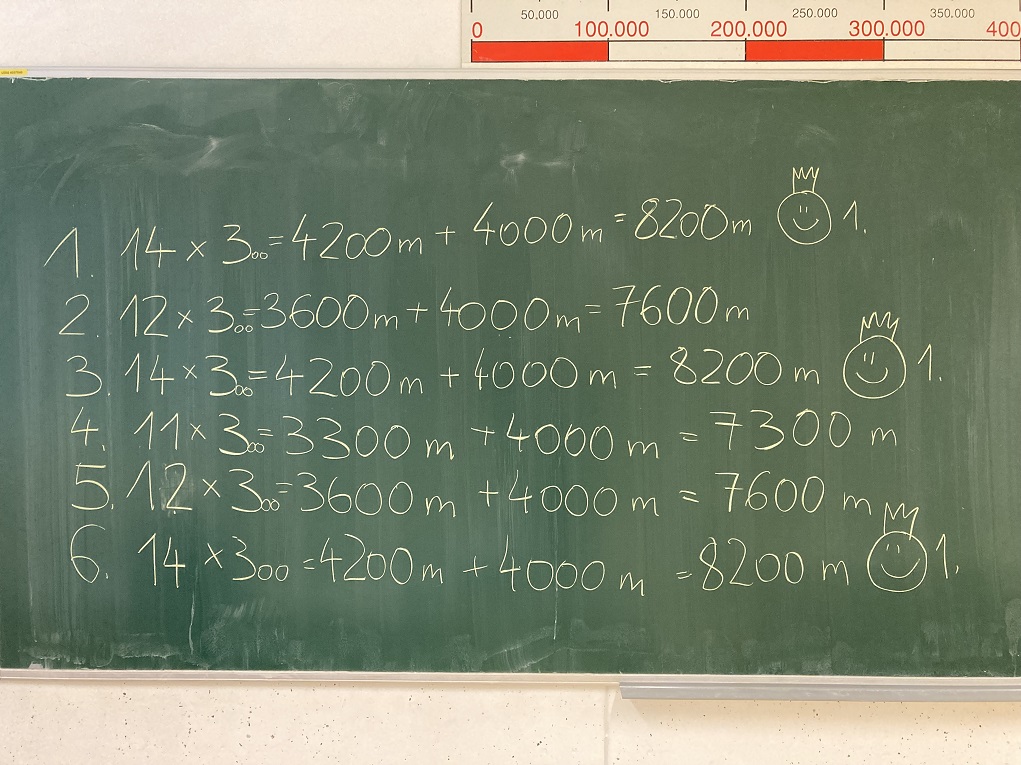 50.000 150.000 250.000 350.000
0 100.000 200.000 300.000 400
1. 14 x 300 = 4200m + 4000m = 8200m 1.
2. 12 x 300 = 3600m + 4000m = 7600m
3. 14 x 300 = 4200m + 4000m = 8200m 1.
4. 11 x 300 = 3300 m + 4000 m = 7300 m
5. 12 x 300 = 3600 m + 4000 m = 7600 m
6. 14 x 300 = 4200m + 4000 m = 8200 m 1.